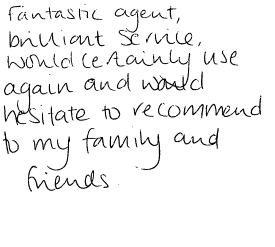 Fantastic agent,
brilliant service,
would certainly use
again and would
hesitate to recommend
to my family and
friends.